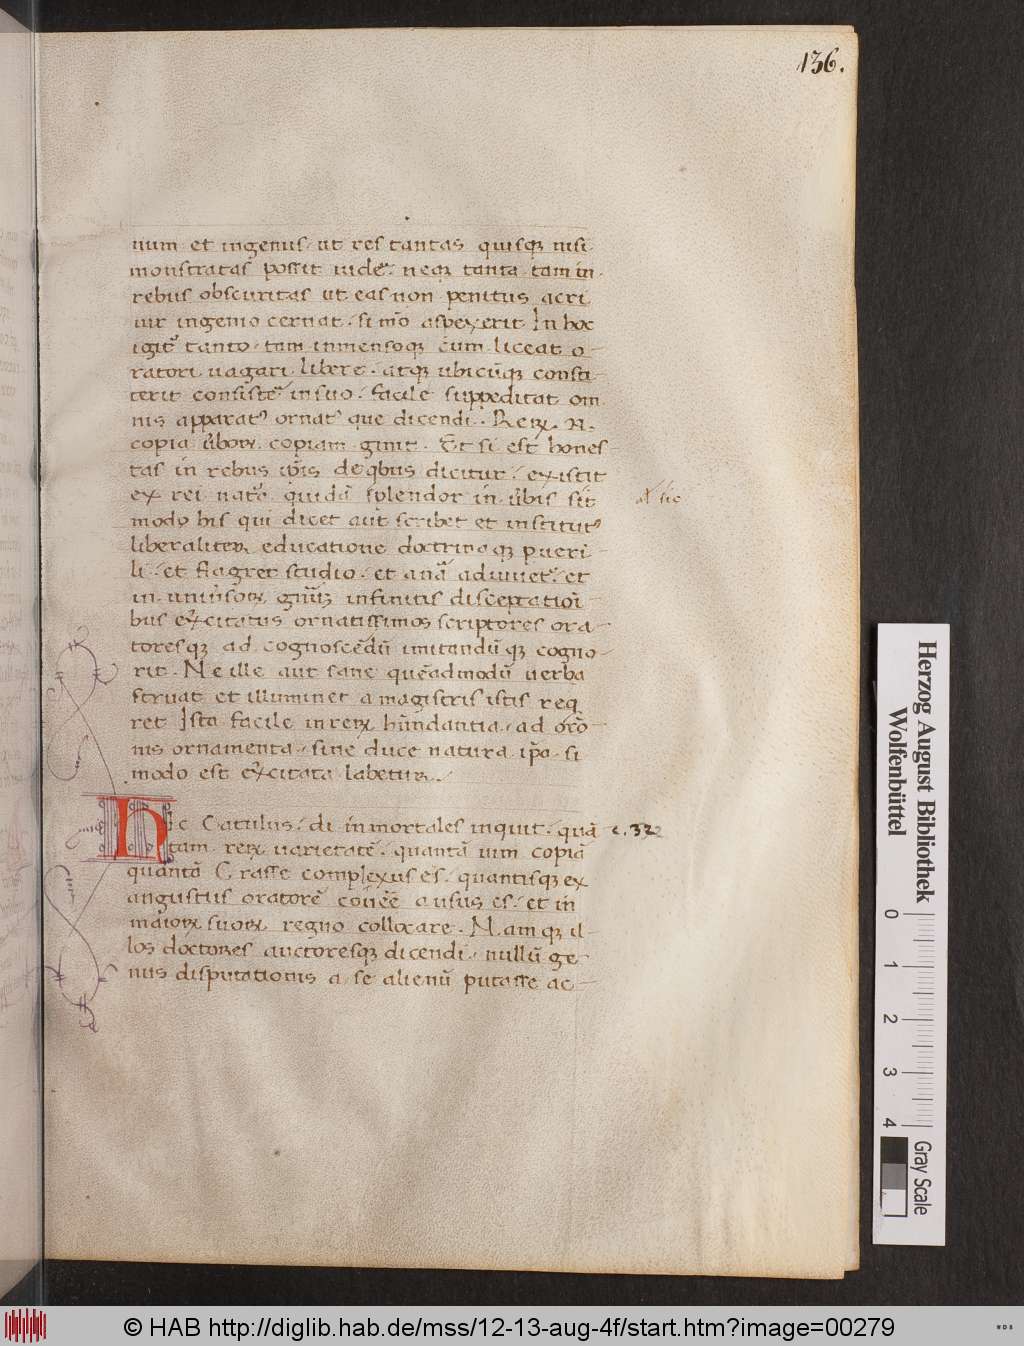 136.
uum et ingenus. ut res tantas quisq; nisi
monstratas possit uide. neq; tanta tam in
rebus obscuritas ut eas non penitus acri
uir ingenio cernat. si mo aspexerit In hoc
igit tanto. tam inmensoq; cum liceat o-
ratori uagari libere. atq; ubicuq; consti
terit consiste in suo. facile suppeditat om
nis apparat ornat que dicendi. Rerum n.
copia copiam ginit. Et si est hones
tas in rebus ipis de qbus dicitur. existit
ex rei nat quida splendor in ubis sit
modo his qui dicet aut scribet et institut
liberaliter educatione doctrina q; pueri
li. et flagret studio. et a adiuuet. et
in infinitis disceptatioi
bus excitatus ornatissimos scriptores ora-
toresq; ad cognoscedu imitanduq; cogno-
rit. Ne ille aut sane queadmodu uerba
struat et illuminet a magistris istis req
ret Ista facile in rerum hundantia. ad oro-
nis ornamenta. sine duce natura ipa. si
modo est excitata labetur.
al sic
Hic Catulus. di inmortales inquit. qua
c. 32
tam rerum uarietate. quanta uim copia
quanta Crasse complexus es. quantisq; ex
angustiis oratore ausus es. et in
maiorum suorum regno collocare. Namq; il-
los doctores auctoresq; dicendi. nullu ge-
nus disputationis a se alienu putasse ac-
Herzog August Bibliothek
Wolfenbüttel
0 1 2 3 4
Gray Scale
© HAB http://diglib.hab.de/mss/12-13-aug-4f/start.htm?image=00279